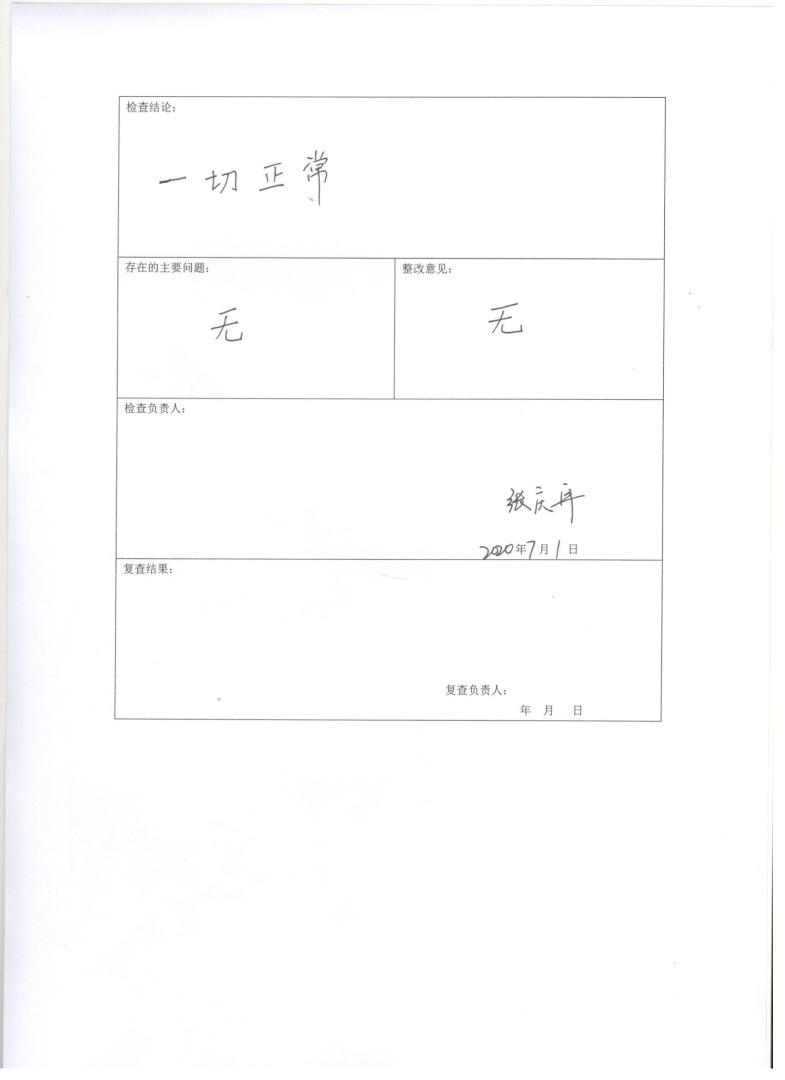 检查结论：
一切正常
存在的主要问题：
整改意见：
无
无
检查负责人：
张庆
2020年7月1日
复查结果：
复查负责人：
年 月 日